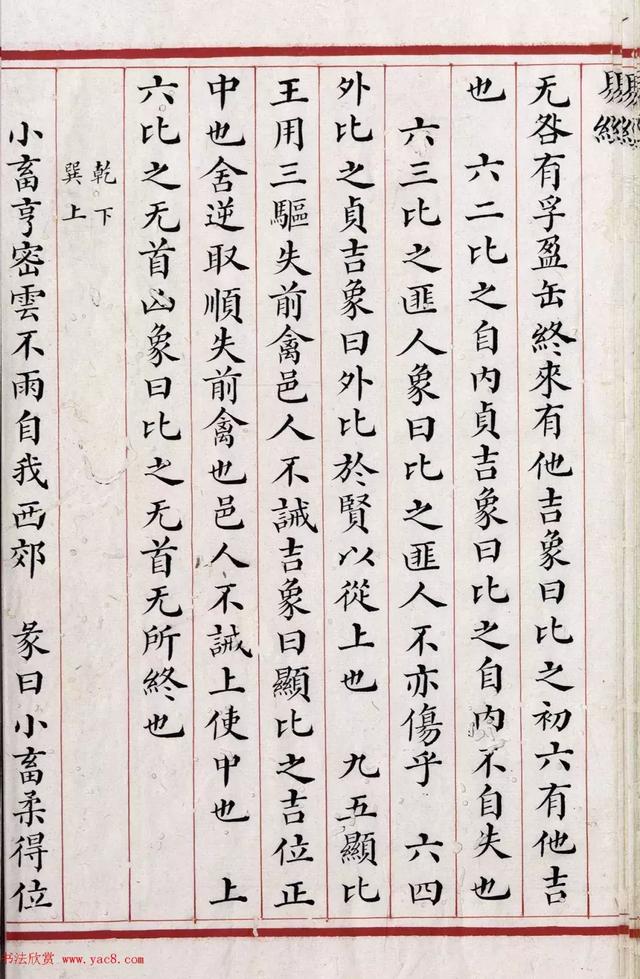 易經
无咎有孚盈缶終來有他吉象曰比之初六有他吉
也 六二比之自内貞吉象曰比之自内不自失也
六三比之匪人象曰比之匪人不亦傷乎 六四
外比之貞吉象曰外比於賢以從上也 九五顯比
王用三驅失前禽邑人不誡吉象曰顯比之吉位正
中也舍逆取順失前禽也邑人不誡上使中也 上
六比之无首凶象曰比之无首无所終也
乾下
巽上
小畜亨密雲不雨自我西郊 彖曰小畜柔得位
书法欣赏 www.yac8.com